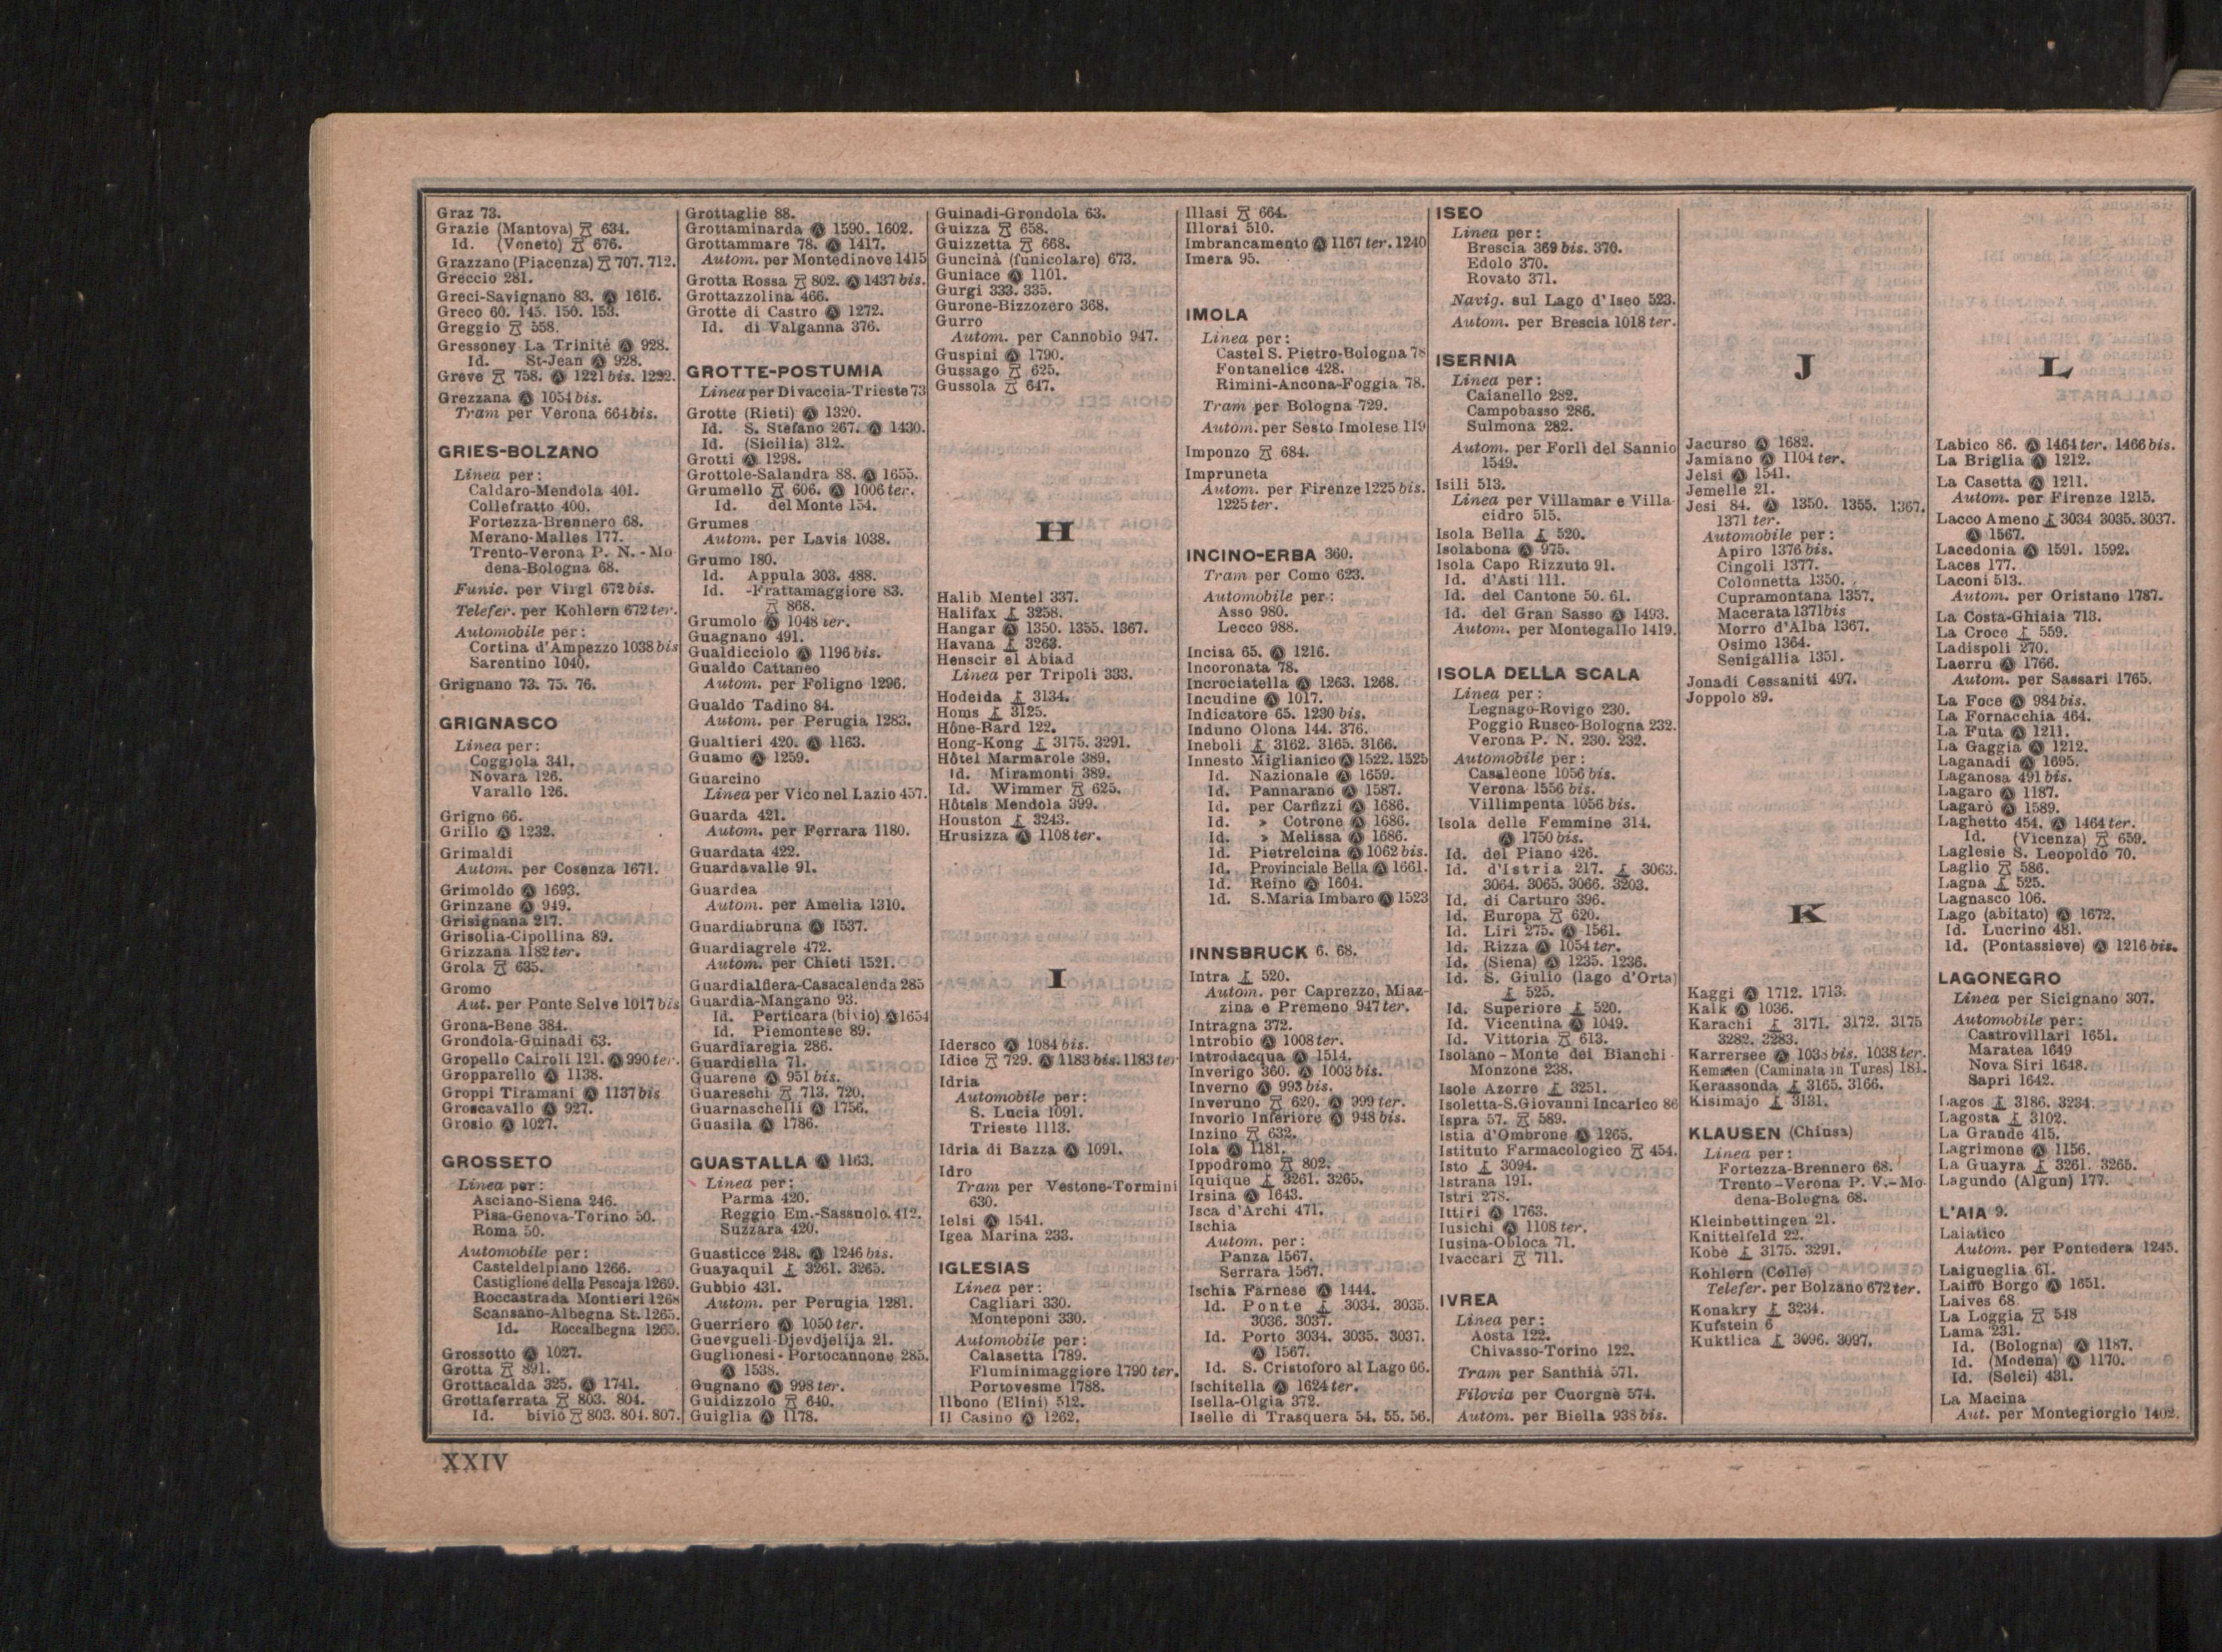 Graz 73.
Grazie (Mantova) 634.
Id. (Veneto) 676.
Grazzano (Piacenza) 707. 712.
Greccio 281.
Greci-Savignano 83. Ⓐ 1616.
Greco 60. 145. 150. 153.
Greggio 558.
Gressoney La Trinité Ⓐ 928.
Id. St-Jean Ⓐ 928.
Greve 758. Ⓐ 1221 bis. 1222.
Grezzana Ⓐ 1054 bis.
Tram per Verona 664 bis.
GRIES-BOLZANO
Linea per:
Caldaro-Mendola 401.
Collefratto 400.
Fortezza-Brennero 68.
Merano-Malles 177.
Trento-Verona P. N. - Mo
dena-Bologna 68.
Funic. per Virgl 672 bis.
Telefer. per Kohlern 672 ter.
Automobile per:
Cortina d'Ampezzo 1038 bis
Sarentino 1040.
Grignano 73. 75. 76.
GRIGNASCO
Linea per:
Coggiola 341.
Novara 126.
Varallo 126.
Grigno 66.
Grillo Ⓐ 1232.
Grimaldi
Autom. per Cosenza 1671.
Grimoldo Ⓐ 1693.
Grinzane Ⓐ 949.
Grisignana 217.
Grisolia-Cipollina 89.
Grizzana 1182 ter.
Grola 635.
Gromo
Aut. per Ponte Selve 1017 bis
Grona-Bene 384.
Grondola-Guinadi 63.
Gropello Cairoli 121. Ⓐ 990 ter.
Gropparello Ⓐ 1138.
Groppi Tiramani Ⓐ 1137 bis
Groscavallo Ⓐ 927.
Grosio Ⓐ 1027.
GROSSETO
Linea per:
Asciano-Siena 246.
Pisa-Genova-Torino 50.
Roma 50.
Automobile per:
Casteldelpiano 1266.
Castiglione della Pescaja 1269.
Roccastrada Montieri 1268
Scansano-Albegna St. 1265.
Id. Roccalbegna 1265.
Grossotto Ⓐ 1027.
Grotta 891.
Grottacalda 325. Ⓐ 1741.
Grottaferrata 803. 804.
Id. bivio 803. 804. 807.
Grottaglie 88.
Grottaminarda Ⓐ 1590. 1602.
Grottammare 78. Ⓐ 1417.
Autom. per Montedinove 1415
Grotta Rossa 802. Ⓐ 1437 bis.
Grottazzolina 466.
Grotte di Castro Ⓐ 1272.
Id. di Valganna 376.
GROTTE-POSTUMIA
Linea per Divaccia-Trieste 73
Grotte (Rieti) Ⓐ 1320.
Id. S. Stefano 267. Ⓐ 1430.
Id. (Sicilia) 312.
Grotti Ⓐ 1298.
Grottole-Salandra 88. Ⓐ 1655.
Grumello 606. Ⓐ 1006 ter.
Id. del Monte 154.
Grumes
Autom. per Lavis 1038.
Grumo 180.
Id. Appula 303. 488.
Id. -Frattamaggiore 83.
868.
Grumolo Ⓐ 1048 ter.
Guagnano 491.
Gualdicciolo Ⓐ 1196 bis.
Gualdo Cattaneo
Autom. per Foligno 1296.
Gualdo Tadino 84.
Autom. per Perugia 1283.
Gualtieri 420. Ⓐ 1163.
Guamo Ⓐ 1259.
Guarcino
Linea per Vico nel Lazio 457.
Guarda 421.
Autom. per Ferrara 1180.
Guardata 422.
Guardavalle 91.
Guardea
Autom. per Amelia 1310.
Guardiabruna Ⓐ 1537.
Guardiagrele 472.
Autom. per Chieti 1521.
Guardialfiera-Casacalenda 285
Guardia-Mangano 93.
Id. Perticara (bivio) Ⓐ 1654
Id. Piemontese 89.
Guardiaregia 286.
Guardiella 71.
Guarene Ⓐ 951 bis.
Guareschi 713. 720.
Guarnaschelli Ⓐ 1756.
Guasila Ⓐ 1786.
GUASTALLA Ⓐ 1163.
Linea per:
Parma 420.
Reggio Em.-Sassuolo. 412.
Suzzara 420.
Guasticce 248. Ⓐ 1246 bis.
Guayaquil 3261. 3265.
Gubbio 431.
Autom. per Perugia 1281.
Guerriero Ⓐ 1050 ter.
Guevgueli-Djevdjelija 21.
Guglionesi - Portocannone 285.
Ⓐ 1538.
Gugnano Ⓐ 998 ter.
Guidizzolo 640.
Guiglia Ⓐ 1178.
Guinadi-Grondola 63.
Guizza 658.
Guizzetta 668.
Guncinà (funicolare) 673.
Guniace Ⓐ 1101.
Gurgi 333. 335.
Gurone-Bizzozero 368.
Gurro
Autom. per Cannobio 947.
Guspini Ⓐ 1790.
Gussago 625.
Gussola 647.
H
Halib Mentel 337.
Halifax 3258.
Hangar Ⓐ 1350. 1355. 1367.
Havana 3263.
Henscir el Abiad
Linea per Tripoli 333.
Hodeida 3134.
Homs 3125.
Hône-Bard 122.
Hong-Kong 3175. 3291.
Hôtel Marmarole 389.
Id. Miramonti 389.
Id. Wimmer 625.
Hôtels Mendola 399.
Houston 3243.
Hrusizza Ⓐ 1108 ter.
I
Idersco Ⓐ 1084 bis.
Idice 729. Ⓐ 1183 bis. 1183 ter
Idria
Automobile per:
S. Lucia 1091.
Trieste 1113.
Idria di Bazza Ⓐ 1091.
Idro
Tram per Vestone-Tormini
630.
Ielsi Ⓐ 1541.
Igea Marina 233.
IGLESIAS
Linea per:
Cagliari 330.
Monteponi 330.
Automobile per:
Calasetta 1789.
Fluminimaggiore 1790 ter.
Portovesme 1788.
Ilbono (Elini) 512.
Il Casino Ⓐ 1262.
Illasi 664.
Illorai 510.
Imbrancamento Ⓐ 1167 ter. 1240
Imera 95.
IMOLA
Linea per:
Castel S. Pietro-Bologna 78
Fontanelice 428.
Rimini-Ancona-Foggia 78.
Tram per Bologna 729.
Autom. per Sesto Imolese 119
Imponzo 684.
Impruneta
Autom. per Firenze 1225 bis.
1225 ter.
INCINO-ERBA 360.
Tram per Como 623.
Automobile per:
Asso 980.
Lecco 988.
Incisa 65. Ⓐ 1216.
Incoronata 78.
Incrociatella Ⓐ 1263. 1268.
Incudine Ⓐ 1017.
Indicatore 65. 1230 bis.
Induno Olona 144. 376.
Ineboli 3162. 3165. 3166.
Innesto Miglianico Ⓐ 1522. 1525
Id. Nazionale Ⓐ 1659.
Id. Pannarano Ⓐ 1587.
Id. per Carfizzi Ⓐ 1686.
Id. » Cotrone Ⓐ 1686.
Id. » Melissa Ⓐ 1686.
Id. Pietrelcina Ⓐ 1062 bis.
Id. Provinciale Bella Ⓐ 1661.
Id. Reino Ⓐ 1604.
Id. S. Maria Imbaro Ⓐ 1523
INNSBRUCK 6. 68.
Intra 520.
Autom. per Caprezzo, Miaz-
zina e Premeno 947 ter.
Intragna 372.
Introbio Ⓐ 1008 ter.
Introdacqua Ⓐ 1514.
Inverigo 360. Ⓐ 1003 bis.
Inverno Ⓐ 993 bis.
Inveruno 620. Ⓐ 999 ter.
Invorio Inferiore Ⓐ 948 bis.
Inzino 632.
Iola Ⓐ 1181.
Ippodromo 802.
Iquique 3261. 3265.
Irsina Ⓐ 1643.
Isca d'Archi 471.
Ischia
Autom. per:
Panza 1567.
Serrara 1567.
Ischia Farnese Ⓐ 1444.
Id. Ponte 3034. 3035.
3036. 3037.
Id. Porto 3034. 3035. 3037.
Ⓐ 1567.
Id. S. Cristoforo al Lago 66.
Ischitella Ⓐ 1624 ter.
Isella-Olgia 372.
Iselle di Trasquera 54. 55. 56.
ISEO
Linea per:
Brescia 369 bis. 370.
Edolo 370.
Rovato 371.
Navig. sul Lago d'Iseo 523.
Autom. per Brescia 1018 ter.
ISERNIA
Linea per:
Caianello 282.
Campobasso 286.
Sulmona 282.
Autom. per Forlì del Sannio
1549.
Isili 513.
Linea per Villamar e Villa-
cidro 515.
Isola Bella 520.
Isolabona Ⓐ 975.
Isola Capo Rizzuto 91.
Id. d'Asti 111.
Id. del Cantone 50. 61.
Id. del Gran Sasso Ⓐ 1493.
Autom. per Montegallo 1419.
ISOLA DELLA SCALA
Linea per:
Legnago-Rovigo 230.
Poggio Rusco-Bologna 232.
Verona P. N. 230. 232.
Automobile per:
Casaleone 1056 bis.
Verona 1556 bis.
Villimpenta 1056 bis.
Isola delle Femmine 314.
Ⓐ 1750 bis.
Id. del Piano 426.
Id. d'Istria 217. 3063.
3064. 3065. 3066. 3203.
Id. di Carturo 396.
Id. Europa 620.
Id. Liri 275. Ⓐ 1561.
Id. Rizza Ⓐ 1054 ter.
Id. (Siena) Ⓐ 1235. 1236.
Id. S. Giulio (lago d'Orta)
525.
Id. Superiore 520.
Id. Vicentina Ⓐ 1049.
Id. Vittoria 613.
Isolano - Monte dei Bianchi -
Monzone 238.
Isole Azorre 3251.
Isoletta-S. Giovanni Incarico 86
Ispra 57. 589.
Istia d'Ombrone Ⓐ 1265.
Istituto Farmacologico 454.
Isto 3094.
Istrana 191.
Istri 278.
Ittiri Ⓐ 1763.
Iusichi Ⓐ 1108 ter.
Iusina-Obloca 71.
Ivaccari 711.
IVREA
Linea per:
Aosta 122.
Chivasso-Torino 122.
Tram per Santhià 571.
Filovia per Cuorgnè 574.
Autom. per Biella 938 bis.
J
Jacurso Ⓐ 1682.
Jamiano Ⓐ 1104 ter.
Jelsi Ⓐ 1541.
Jemelle 21.
Jesi 84. Ⓐ 1350. 1355. 1367.
1371 ter.
Automobile per:
Apiro 1376 bis.
Cingoli 1377.
Colonnetta 1350.
Cupramontana 1357.
Macerata 1371 bis
Morro d'Alba 1367.
Osimo 1364.
Senigallia 1351.
Jonadi Cessaniti 497.
Joppolo 89.
K
Kaggi Ⓐ 1712. 1713.
Kalk Ⓐ 1036.
Karachi 3171. 3172. 3175
3282. 3283.
Karrersee Ⓐ 1038 bis. 1038 ter.
Kematen (Caminata in Tures) 181.
Kerassonda 3165. 3166.
Kisimajo 3131.
KLAUSEN (Chiusa)
Linea per:
Fortezza-Brennero 68.
Trento-Verona P. V.-Mo
dena-Bologna 68.
Kleinbettingen 21.
Knittelfeld 22.
Kobe 3175. 3291.
Kohlern (Colle)
Telefer. per Bolzano 672 ter.
Konakry 3234.
Kufstein 6
Kuktlica 3096. 3097.
L
Labico 86. Ⓐ 1464 ter. 1466 bis.
La Briglia Ⓐ 1212.
La Casetta Ⓐ 1211.
Autom. per Firenze 1215.
Lacco Ameno 3034 3035. 3037.
Ⓐ 1567.
Lacedonia Ⓐ 1591. 1592.
Laces 177.
Laconi 513.
Autom. per Oristano 1787.
La Costa-Ghiaia 713.
La Croce 559.
Ladispoli 270.
Laerru Ⓐ 1766.
Autom. per Sassari 1765.
La Foce Ⓐ 984 bis.
La Fornacchia 464.
La Futa Ⓐ 1211.
La Gaggia Ⓐ 1212.
Laganadi Ⓐ 1695.
Laganosa 491 bis.
Lagaro Ⓐ 1187.
Lagarò Ⓐ 1589.
Laghetto 454. Ⓐ 1464 ter.
Id. (Vicenza) 659.
Laglesie S. Leopoldo 70.
Laglio 586.
Lagna 525.
Lagnasco 106.
Lago (abitato) Ⓐ 1672.
Id. Lucrino 481.
Id. (Pontassieve) Ⓐ 1216 bis.
LAGONEGRO
Linea per Sicignano 307.
Automobile per:
Castrovillari 1651.
Maratea 1649
Nova Siri 1648.
Sapri 1642.
Lagos 3186. 3234.
Lagosta 3102.
La Grande 415.
Lagrimone Ⓐ 1156.
La Guayra 3261. 3265.
Lagundo (Algun) 177.
L'AIA 9.
Laiatico
Autom. per Pontedera 1245.
Laigueglia 61.
Laino Borgo Ⓐ 1651.
Laives 68
La Loggia 548
Lama 231.
Id. (Bologna) Ⓐ 1187.
Id. (Modena) Ⓐ 1170.
Id. (Selci) 431.
La Macina
Aut. per Montegiorgio 1402.
XXIV